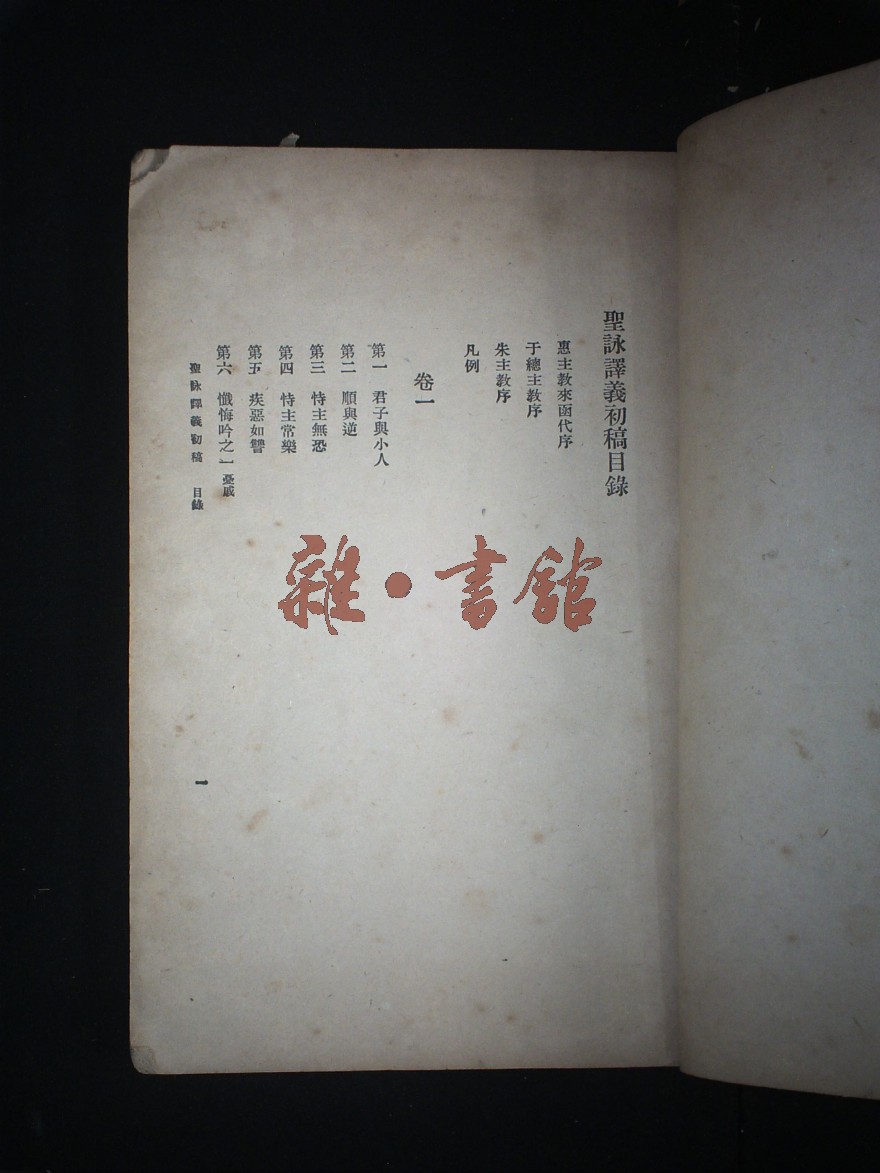 聖詠譯義初稿目錄
惠主教來函代序
于總主教序
朱主教序
凡例
卷一
第一 君子與小人
第二 順與逆
第三 恃主無恐
第四 恃主常樂
第五 疾惡如讐
第六 懺悔吟之一 憂戚
聖詠譯義初稿 目錄
一
雜・書館